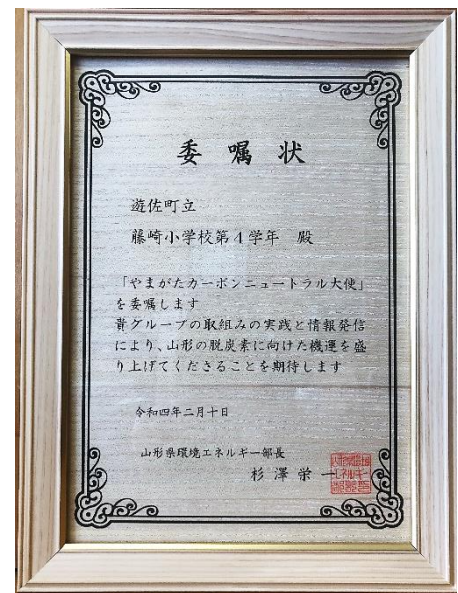 委嘱状
遊佐町立
藤崎小学校第4学年 殿
「やまがたカーボンニュートラル大使」
を委嘱します
貴グループの取組みの実践と情報発信
により、山形の脱炭素に向けた機運を盛
り上げてくださることを期待します
令和四年二月十日
山形県環境エネルギー部長
杉澤栄一